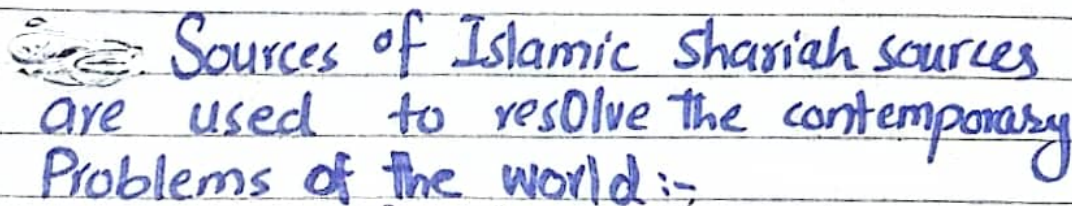 Sources of Islamic Shariah sources
are used to resolve the contemporary
Problems of the world :-